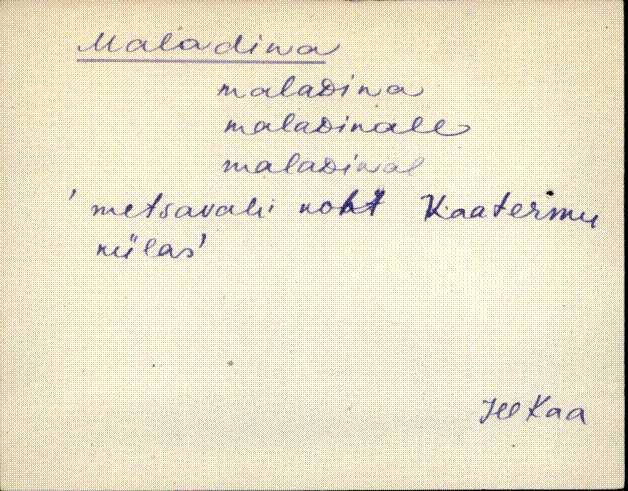 Maladina
malaδina
malaδinalle
malaδinal
'metsavahi koht Kaatermu
külas'
Jee Kaa